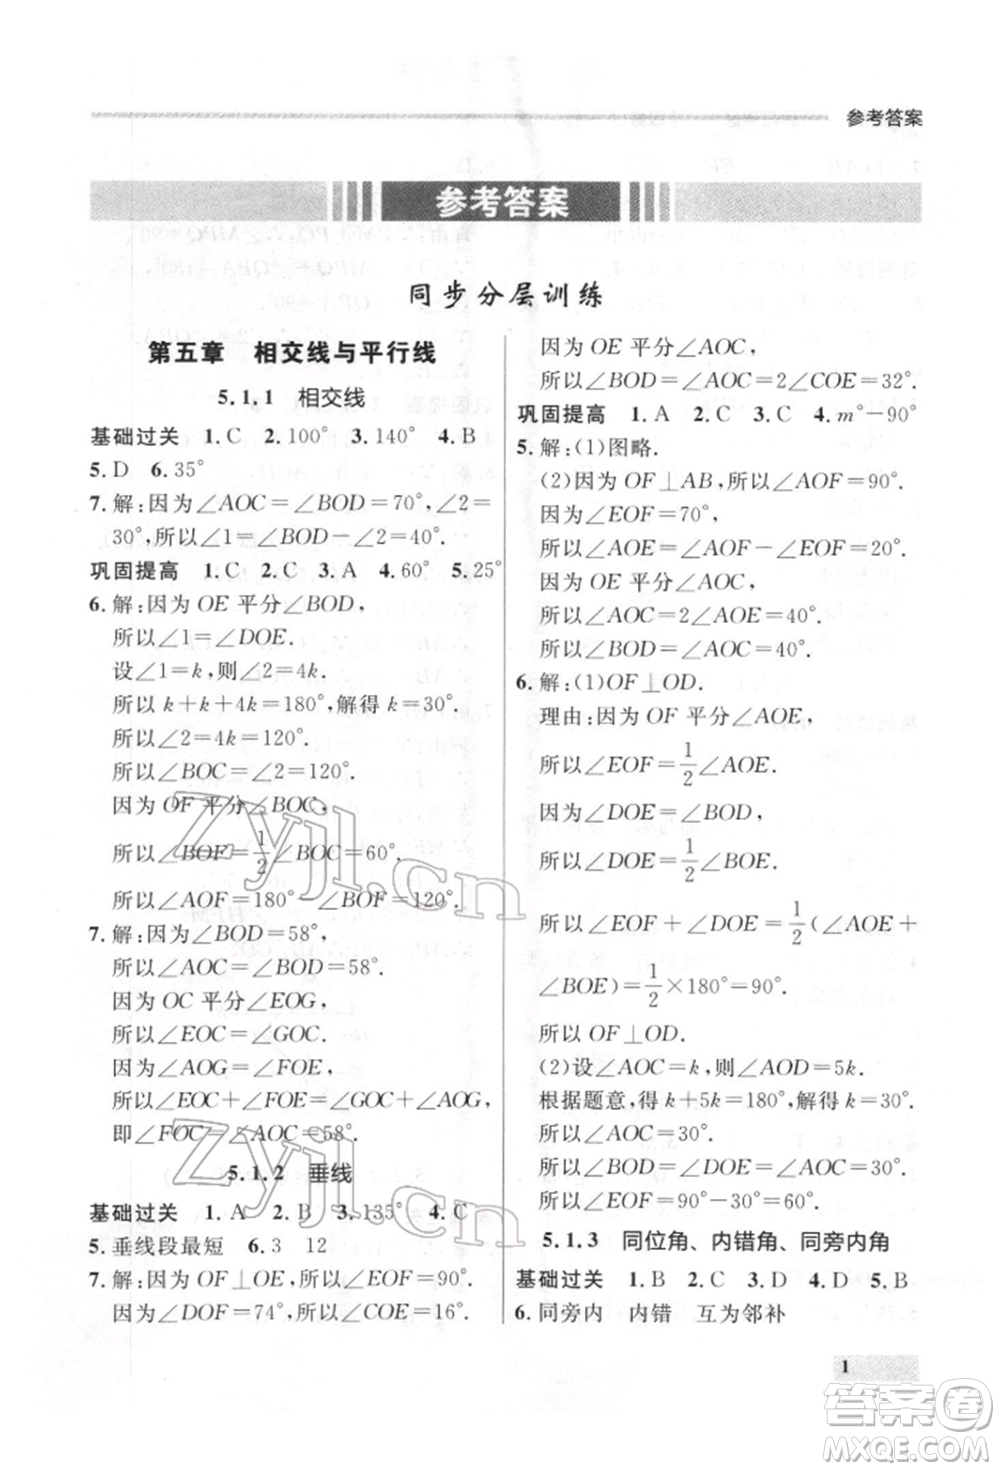 参考答案
参考答案
同步分层训练
第五章 相交线与平行线
5.1.1 相交线
基础过关 1.C 2.100° 3.140° 4.B
5.D 6.35°
7.解:因为∠AOC=∠BOD=70°,∠2=
30°,所以∠1=∠BOD-∠2=40°.
巩固提高 1.C 2.C 3.A 4.60° 5.25°
6.解:因为 OE 平分∠BOD,
所以∠1=∠DOE.
设∠1=k,则∠2=4k.
所以 k+k+4k=180°,解得 k=30°.
所以∠2=4k=120°.
所以∠BOC=∠2=120°.
因为 OF 平分∠BOC,
所以∠BOF=1/2∠BOC=60°.
所以∠AOF=180°-∠BOF=120°.
7.解:因为∠BOD=58°,
所以∠AOC=∠BOD=58°.
因为 OC 平分∠EOG,
所以∠EOC=∠GOC.
因为∠AOG=∠FOE,
所以∠EOC+∠FOE=∠GOC+∠AOG,
即∠FOC=∠AOC=58°.
5.1.2 垂线
基础过关 1.A 2.B 3.135° 4.C
5.垂线段最短 6.3 12
7.解:因为 OF⊥OE,所以∠EOF=90°.
因为∠DOF=74°,所以∠COE=16°.
因为 OE 平分∠AOC,
所以∠BOD=∠AOC=2∠COE=32°.
巩固提高 1.A 2.C 3.C 4.m°-90°
5.解:(1)图略.
(2)因为 OF⊥AB,所以∠AOF=90°.
因为∠EOF=70°,
所以∠AOE=∠AOF-∠EOF=20°.
所以∠AOC=2∠AOE=40°.
所以∠BOD=∠AOC=40°.
6.解:(1)OF⊥OD.
理由:因为 OF 平分∠AOE,
所以∠EOF=1/2∠AOE.
因为∠DOE=∠BOD,
所以∠DOE=1/2∠BOE.
所以∠EOF+∠DOE=1/2(∠AOE+
∠BOE)=1/2×180°=90°.
所以 OF⊥OD.
(2)设∠AOC=k,则∠AOD=5k.
根据题意,得 k+5k=180°,解得 k=30°.
所以∠AOC=30°.
所以∠BOD=∠DOE=∠AOC=30°.
所以∠EOF=90°-30°=60°.
5.1.3 同位角、内错角、同旁内角
基础过关 1.B 2.C 3.D 4.D 5.B
6.同旁内 内错 互为邻补
1
Zyjl.cn
Zyjl.cn
答案圈
MXQE.COM